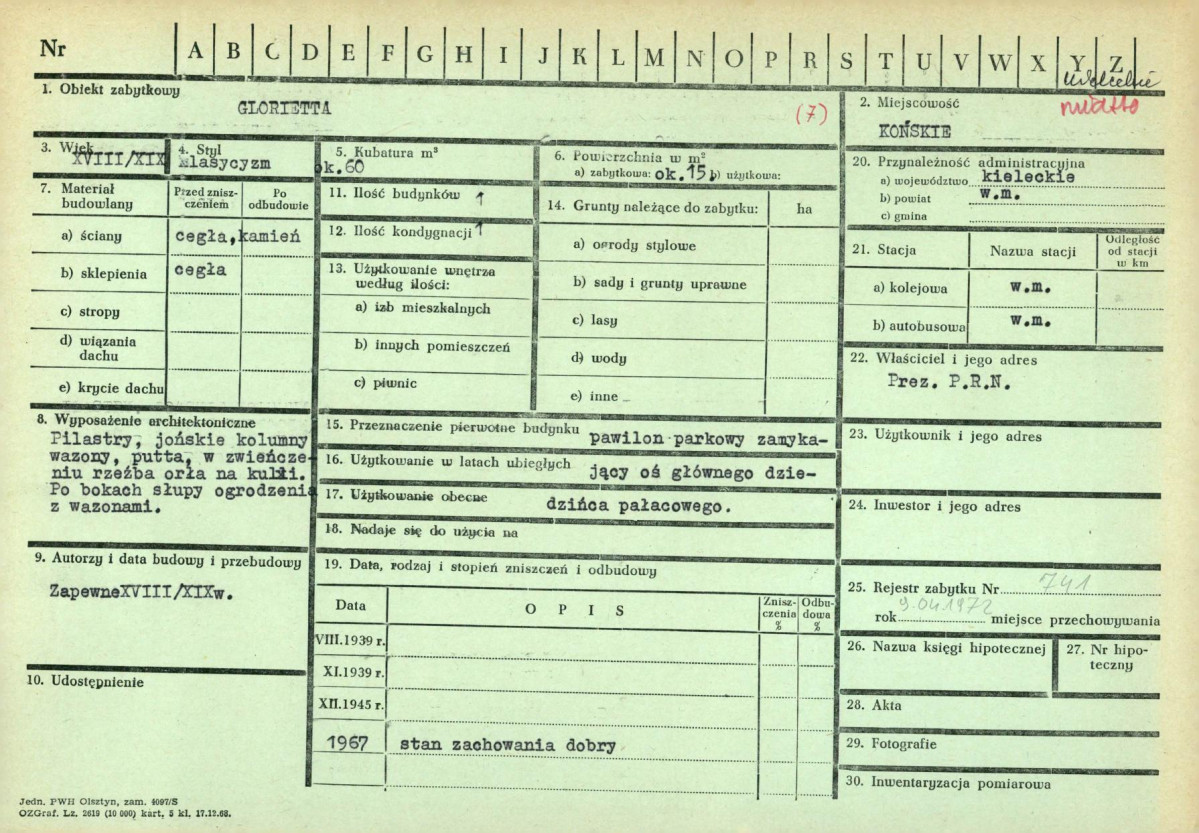 Nr A B C D E F G H I J K L M N O P R S T U V W X Y Z
1. Obiekt zabytkowy
GLORIETTA
(7)
2. Miejscowość
miasto
KOŃSKIE
3. Wiek
XVIII/XIX
4. Styl
klasycyzm
5. Kubatura m³
ok.60
6. Powierzchnia w m²
a) zabytkowa: ok.15 b) użytkowa:
20. Przynależność administracyjna
a) województwo kieleckie
b) powiat w.m.
c) gmina
7. Materiał budowlany
Przed znisz-
czeniem
Po
odbudowie
a) ściany cegła, kamień
b) sklepienia cegła
c) stropy
d) wiązania
dachu
e) krycie dachu
11. Ilość budynków 1
12. Ilość kondygnacji 1
13. Użytkowanie wnętrza
według ilości:
a) izb mieszkalnych
b) innych pomieszczeń
c) piwnic
14. Grunty należące do zabytku: ha
a) ogrody stylowe
b) sady i grunty uprawne
c) lasy
d) wody
e) inne
21. Stacja
Nazwa stacji
Odległość
od stacji
w km
a) kolejowa w.m.
b) autobusowa w.m.
22. Właściciel i jego adres
Prez. P.R.N.
8. Wyposażenie architektoniczne
Pilastry, jońskie kolumny
wazony, putta, w zwieńcze-
niu rzeźba orła na kuli.
Po bokach słupy ogrodzenia
z wazonami.
15. Przeznaczenie pierwotne budynku pawilon parkowy zamyka-
16. Użytkowanie w latach ubiegłych jący oś głównego dzie-
17. Użytkowanie obecne dzińca pałacowego.
18. Nadaje się do użycia na
23. Użytkownik i jego adres
24. Inwestor i jego adres
9. Autorzy i data budowy i przebudowy
ZapewneXVIII/XIXw.
10. Udostępnienie
19. Data, rodzaj i stopień zniszczeń i odbudowy
Data
O P I S
Znisz-
czenia
%
Odbu-
dowa
%
VIII.1939 r.
XI.1939 r.
XII.1945 r.
1967 stan zachowania dobry
25. Rejestr zabytku Nr 741
rok 9.04.1972 miejsce przechowywania
26. Nazwa księgi hipotecznej
27. Nr hipo-
teczny
28. Akta
29. Fotografie
30. Inwentaryzacja pomiarowa
Jedn. PWH Olsztyn, zam. 4097/S
OZGraf. Lz. 2619 (10 000) kart. 5 kl. 17.12.68.